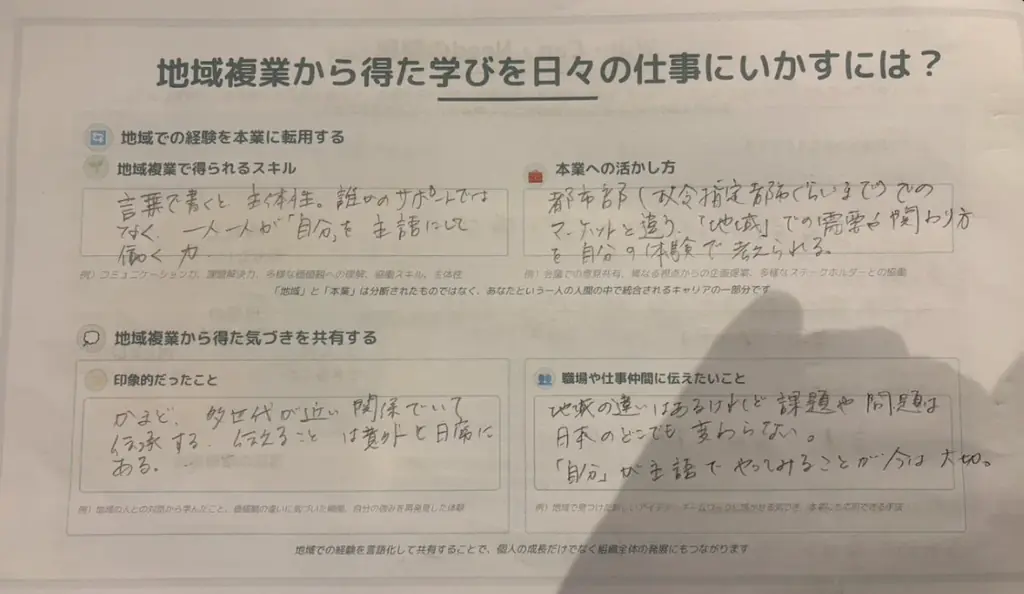 地域複業から得た学びを日々の仕事にいかすには？
地域での経験を本業に転用する
地域複業で得られるスキル
言葉で書くと主体性。誰かのサポートでは
なく、一人一人が「自分」を主語にして
働く力
例）コミュニケーション力、課題解決力、多様な価値観への理解、協働スキル、主体性
本業への活かし方
都市部（政令指定都市ぐらいまで）での
マーケットと違う、「地域」での需要や関わり方
を自分の体験で考えられる。
例）会議での意見共有、異なる視点からの企画提案、多様なステークホルダーとの協働
「地域」と「本業」は分断されたものではなく、あなたという一人の人間の中で統合されるキャリアの一部分です
地域複業から得た気づきを共有する
印象的だったこと
かまど、多世代が近い関係でいて
伝承する、伝えること は意外と日常に
ある。
例）地域の人との対話から学んだこと、価値観の違いに気づいた瞬間、自分の強みを再発見した体験
職場や仕事仲間に伝えたいこと
地域の違いはあるけれど課題や問題は
日本のどこでも変わらない。
「自分」が主語でやってみることが今は大切。
例）地域で見つけた新しいアイデア、チームワークに活かせる気づき、本業にも応用できる
地域での経験を言語化して共有することで、個人の成長だけでなく組織全体の発展にもつながります